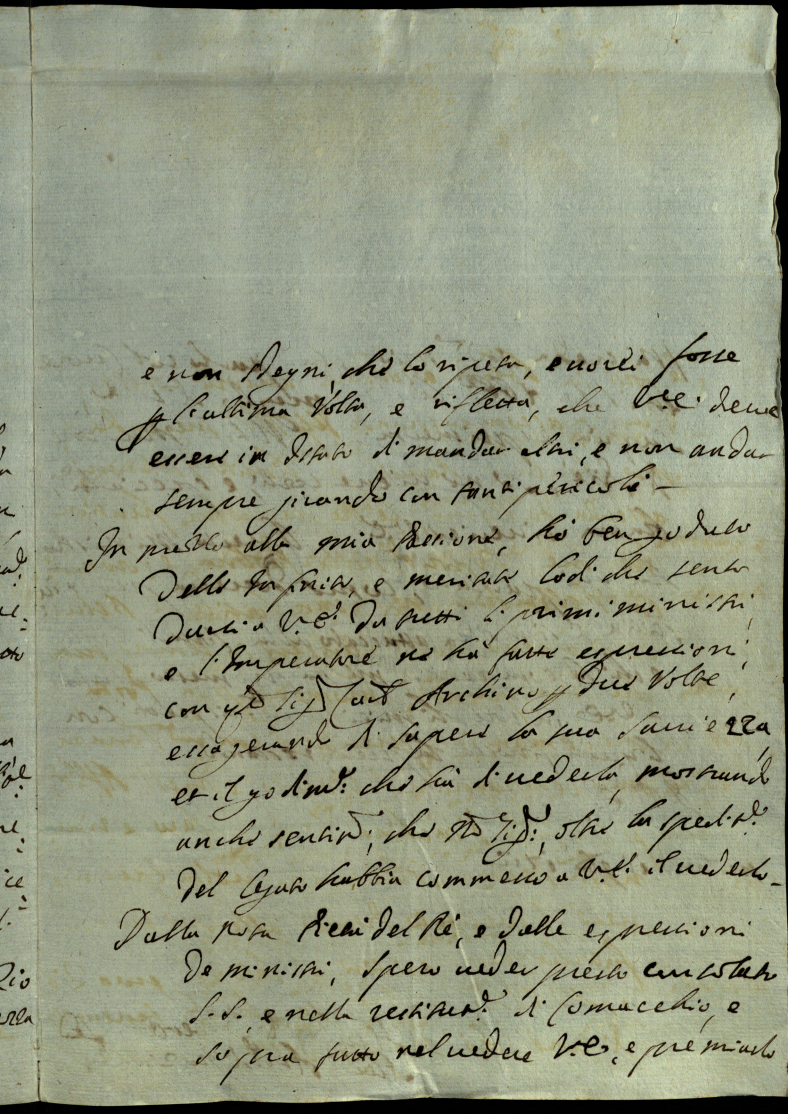 e non sdegni, che lo ripeta, e vorei fosse
p l'ultima volta, e rifletta, che V.E. deue
essere in stato di mandar altri, e non andar
sempre girando con tanti pericoli -
In mezzo alla mia ben goduto
della e meritate lodi che sento
darsi a V.E. da tutti li primi ministri,
e l'Imperatore ne hà fatte espressioni,
con Sig. Card. Archinto p due volte,
essagerando di sapere la sua sauiezza,
et il godim.: che hà di uederla, mostrando
anche sentim.; che Sig.:, oltre la spediz.:
del Legato habbia commesso a V.E. il uederlo -
Dalla del Rè, e dalle espressioni
de ministri, spero ueder presto consolato
S.S. e nella restituz.: di Comacchio, e
sopra tutto nel uedere V.E., e premiarlo